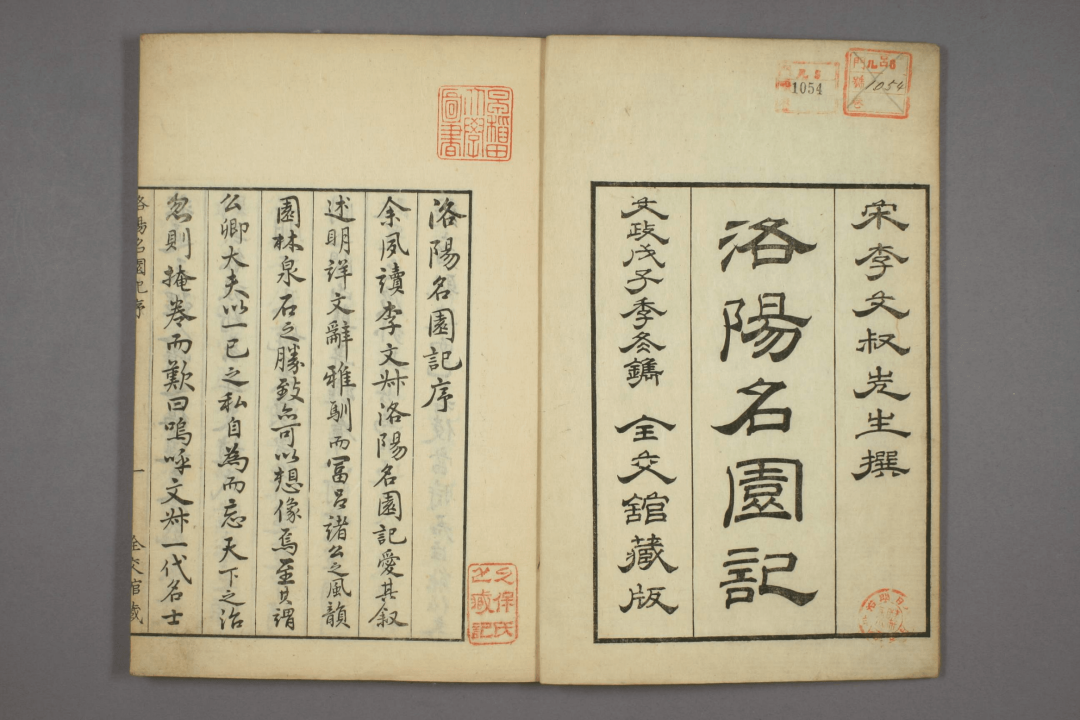 宋李文叔先生撰
洛陽名園記
文政戊子季冬鐫 全交館藏版
1054
1054
早稲田大學圖書
洛陽名園記序
余夙讀李文叔洛陽名園記愛其叙
述明詳文辭雅馴而冨呂諸公之風韻
園林泉石之勝致亦可以想像焉至其謂
公卿大夫以一己之私自為而忘天下之治
忽則掩卷而歎曰嗚呼文叔一代名士
洛陽名園記序 一 全交館藏
久保氏之藏記